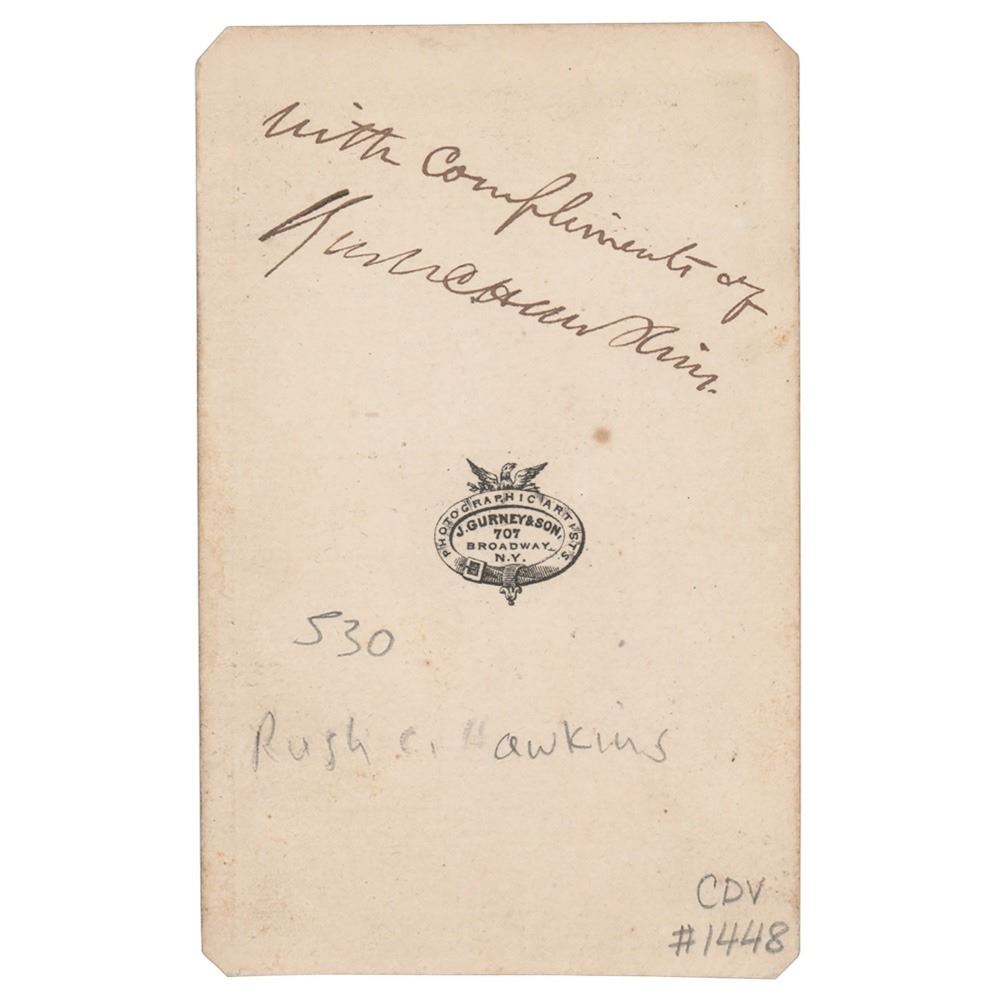 With Compliments of
Rush C Hawkins.
PHOTOGRAPHIC ARTISTS
J. GURNEY & SON,
707
BROADWAY,
N.Y.
530
Rush C. Hawkins
CDV
#1448